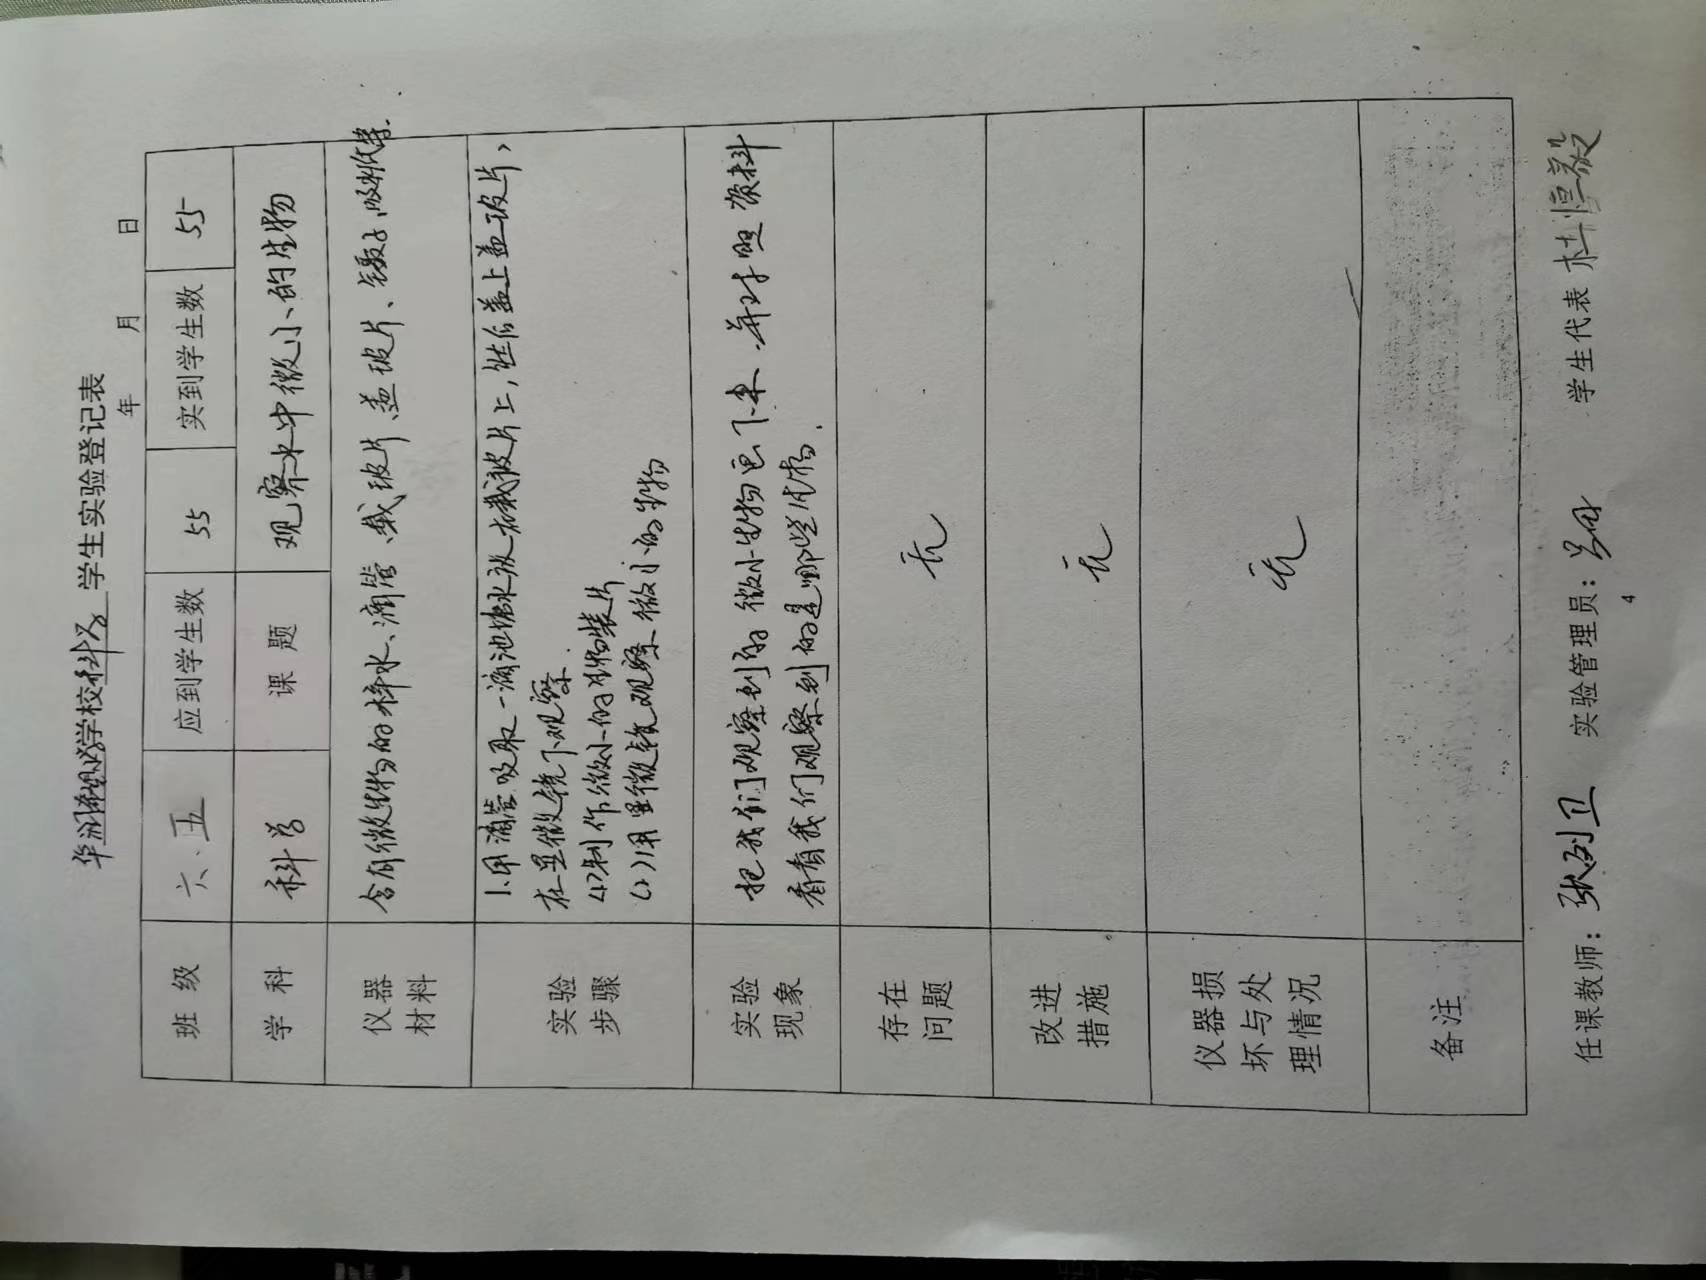 华润希望学校科学学生实验登记表
年 月 日
班 级 六.五 应到学生数 55 实到学生数 55
学 科 科学 课 题 观察水中微小的生物
仪器
材料
含有微生物的样水、滴管、载玻片、盖玻片、镊子、吸水纸等.
实验
步骤
1.用滴管吸取一滴池塘水放在载玻片上,然后盖上盖玻片,
在显微镜下观察.
(1)制作微小的生物装片
(2)用显微镜观察微小的生物
实验
现象
把我们观察到的微小生物画下来.并对照资料
看看我们观察到的是哪些生物.
存在
问题
无
改进
措施
无
仪器损
坏与处
理情况
无
备注
任课教师: 张列卫 实验管理员: 学生代表 杜恒毅
4